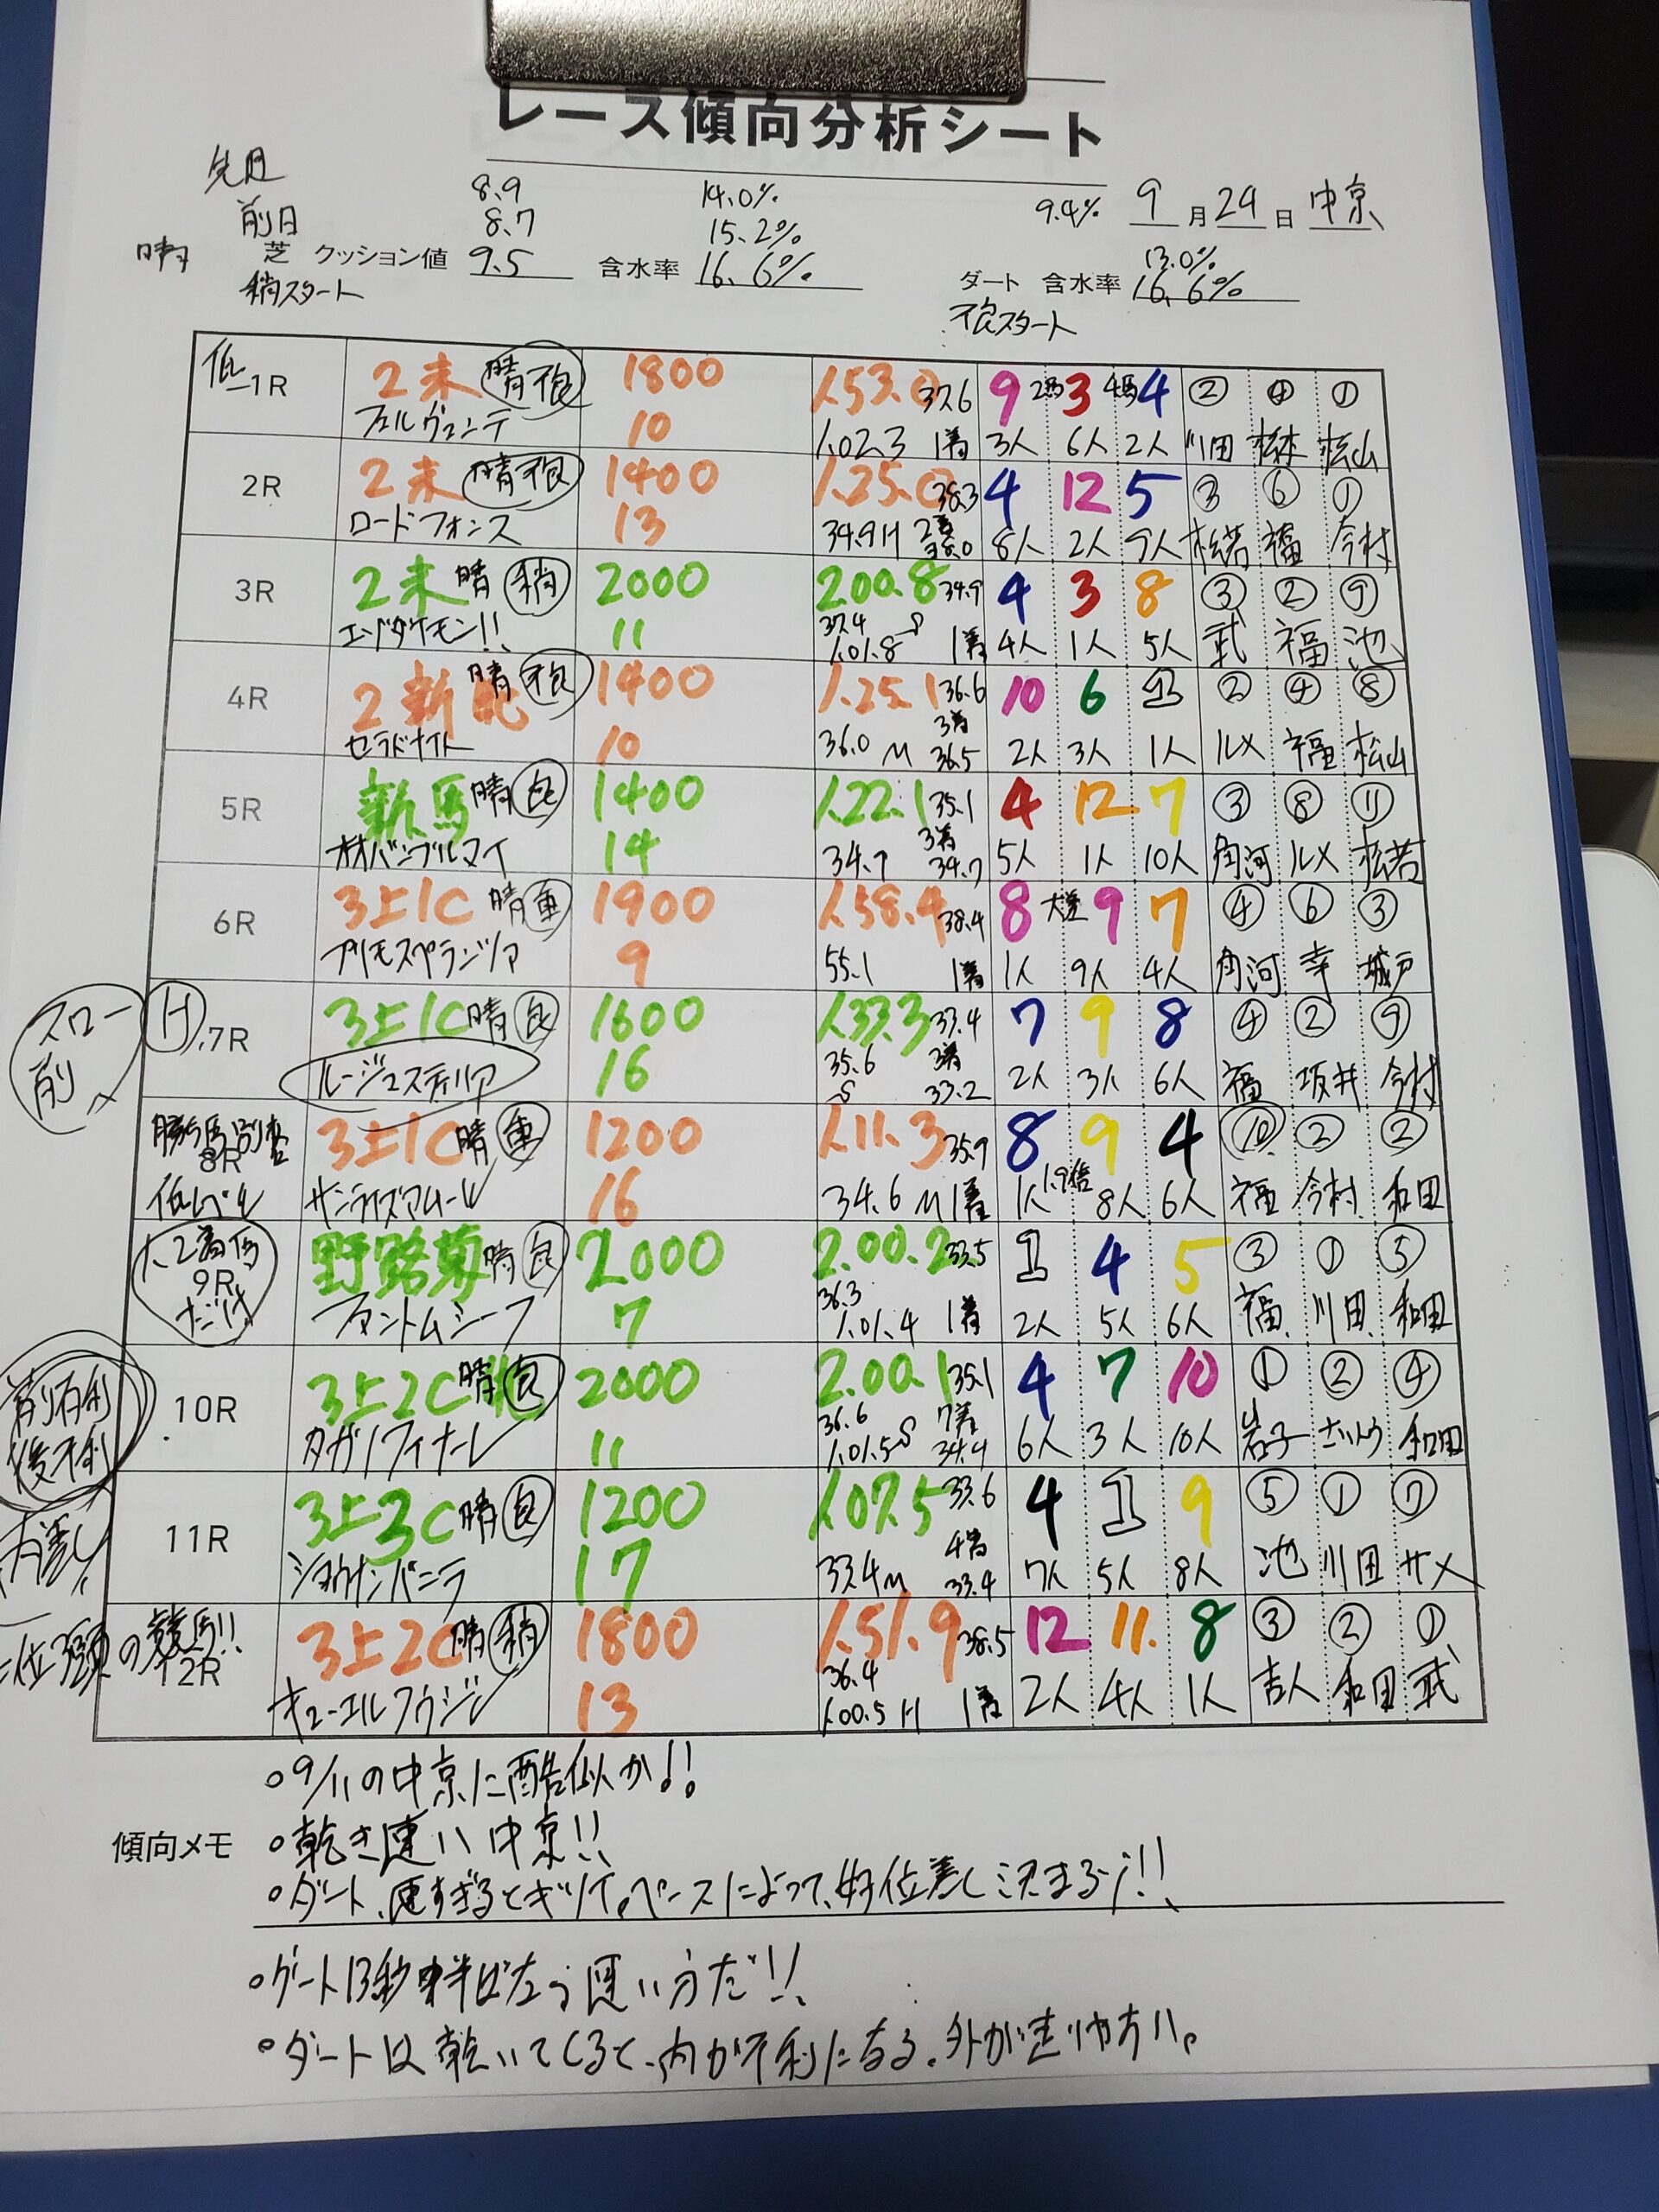 レース傾向分析シート
先週 8.9 14.0% 9.4% 9月24日 中京
前日 8.7 15.2% 13.0%
晴 芝 クッション値 9.5 含水率 16.6% ダート 含水率 16.6%
稍スタート 不良スタート
低 1R 2未 晴 不良 1800 1.53.0 37.6 9 2馬 3 4馬 4 ② ④ ①
フェルヴェンテ 10 1.02.3 1着 3人 6人 2人 川田 松本 松山
2R 2未 晴 不良 1400 1.25.0 38.3 4 12 5 ③ ⑥ ①
ロードフォンス 13 34.9H 2着 8人 2人 9人 松若 福 今村
3R 2未 晴 稍 2000 2.00.8 34.9 4 3 8 ③ ② ⑨
エゾダイモン!! 11 37.4 1.01.8 S 1着 4人 1人 5人 武 福 池
4R 2新 晴 不良 1400 1.25.1 36.6 10 6 1 ② ④ ⑧
セラドナイト 10 36.0 M 3着 36.5 2人 3人 1人 ルメ 福 松山
5R 新馬 晴 良 1400 1.22.1 35.1 4 12 7 ③ ⑧ ⑪
オオバンブルマイ 14 34.7 3着 34.7 5人 1人 10人 角河 ルメ 松若
6R 3上1C 晴 重 1900 1.58.4 38.4 8 大差 9 7 ④ ⑥ ③
プリモスペランツァ 9 55.1 1着 1人 9人 4人 角河 幸 城戸
スロー前 H 7R 3上1C 晴 良 1600 1.33.3 33.4 7 9 8 ④ ② ⑨
ルージュスティリア 16 35.6 S 3着 33.2 2人 3人 6人 福 坂井 今村
勝ち馬別格 8R 3上1C 晴 重 1200 1.11.3 35.9 8 9 4 ⑩ ② ②
低レベル サンライズアムール 16 34.6 M 1着 1人 1.9倍 8人 6人 福 今村 和田
1、2着馬だけ 9R 野路菊 晴 良 2000 2.00.2 33.5 1 4 5 ③ ① ⑤
ファントムシーフ 7 36.3 1.01.4 1着 2人 5人 6人 福 川田 和田
前有利 後不利 10R 3上2C 晴 良 2000 2.00.1 35.1 4 7 10 ① ② ④
タガノフィナーレ 11 36.6 1.01.5 S 7着 34.4 6人 3人 10人 岩子 さいとう 和田
内差し 11R 3上3C 晴 良 1200 1.07.5 33.6 4 1 9 ⑤ ① ⑦
ショウナンバニラ 17 33.4M 4着 33.4 7人 5人 8人 池 川田 サメ
上位3頭の競馬!! 12R 3上2C 晴 稍 1800 1.51.9 38.5 12 11 8 ③ ② ①
キューエルフウジン 13 36.4 1.00.5 H 1着 2人 4人 1人 吉人 和田 武
傾向メモ
○9/11の中京に酷似か!!
○乾き速い中京!!
○ダート、速すぎるとギリギリ。ペースによって、好位差し決まるう!!
○ゲート13秒半ばだったら速い方だ!!
○ダートは乾いてくると、内が不利になる。外が走りやすい。